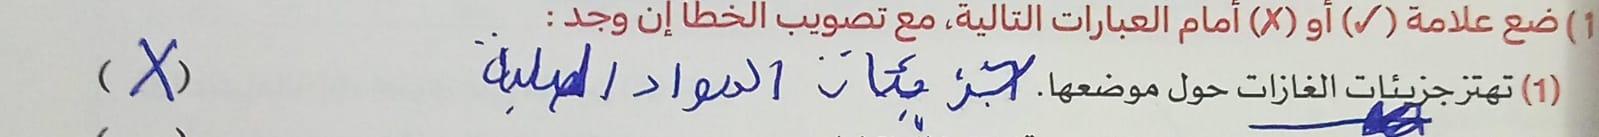 1) ضع علامة (✓) أو (X) أمام العبارات التالية، مع تصويب الخطأ إن وجد :
(1) تهتز جزيئات الغازات حول موضعها. جزيئات المواد الصلبة (X)